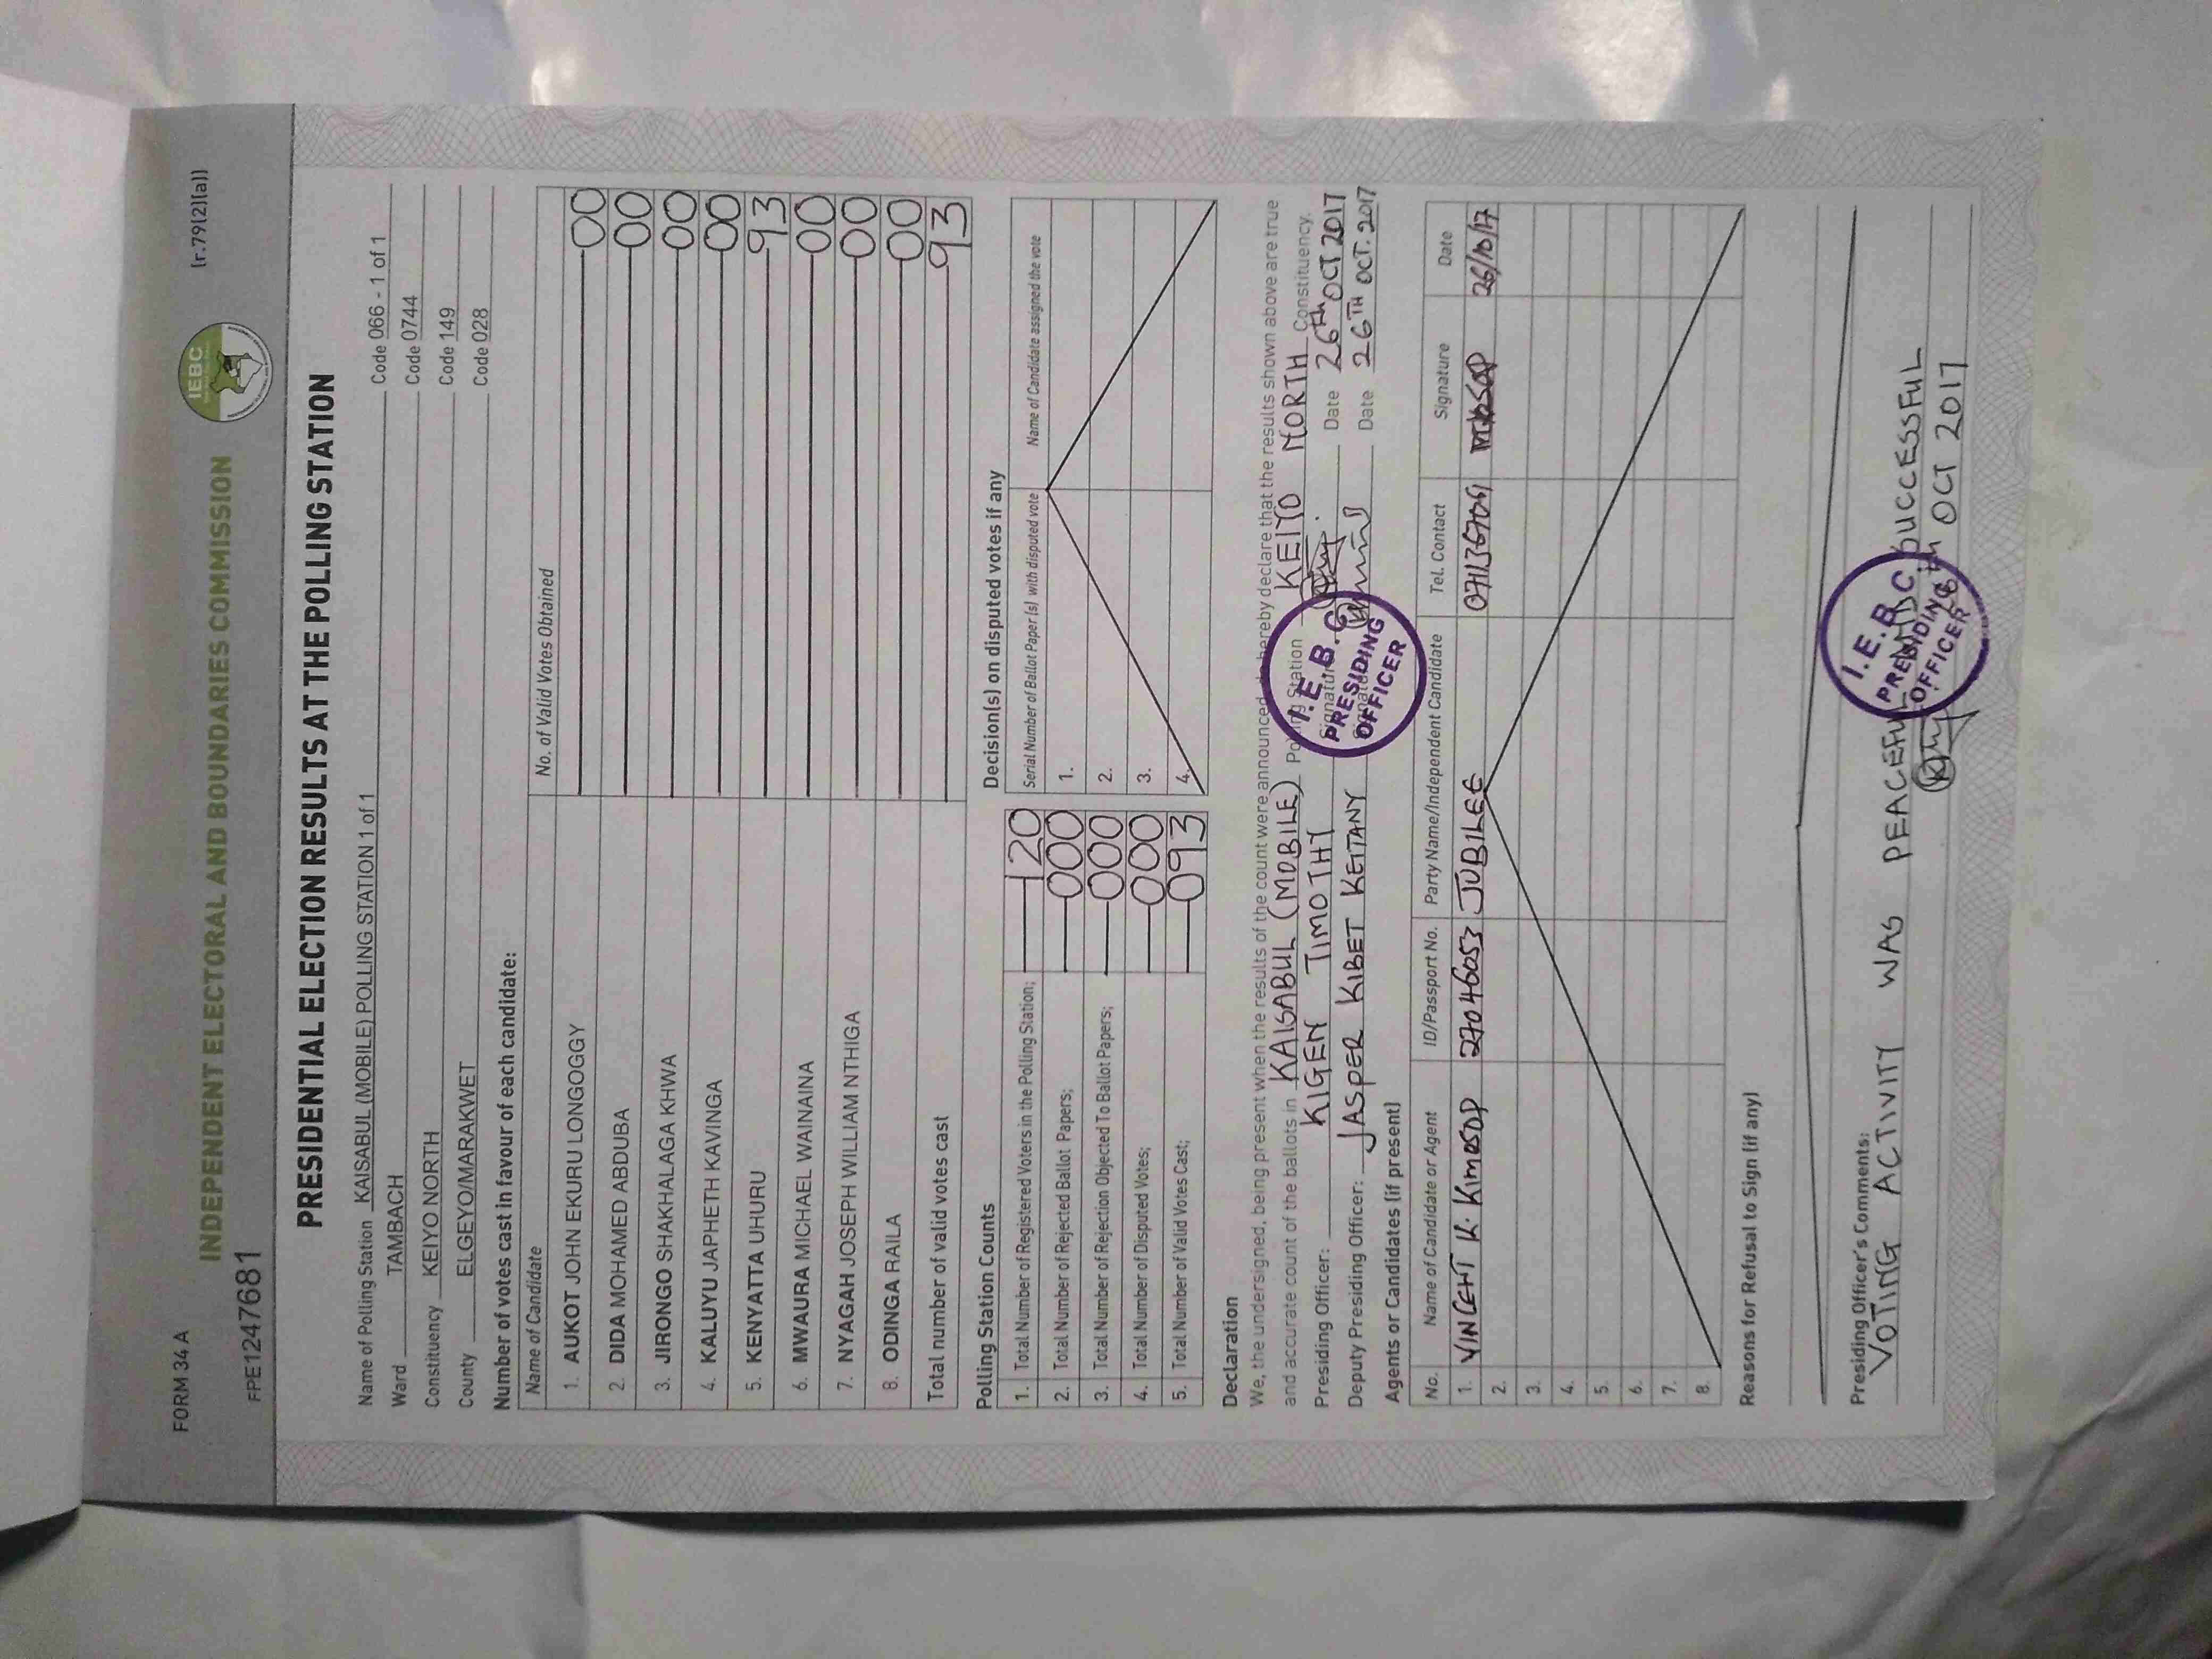 FORM 34 A
INDEPENDENT ELECTORAL AND BOUNDARIES COMMISSION
IEBC
(r.79(2)(a))
FPE1247681
PRESIDENTIAL ELECTION RESULTS AT THE POLLING STATION
Name of Polling Station KAISABUL (MOBILE) POLLING STATION 1 of 1 Code 066 - 1 of 1
Ward TAMBACH Code 0744
Constituency KEIYO NORTH Code 149
County ELGEYO/MARAKWET Code 028
Number of votes cast in favour of each candidate:
Name of Candidate No. of Valid Votes Obtained
1. AUKOT JOHN EKURU LONGOGGY 00
2. DIDA MOHAMED ABDUBA 00
3. JIRONGO SHAKHALAGA KHWA 00
4. KALUYU JAPHETH KAVINGA 00
5. KENYATTA UHURU 93
6. MWAURA MICHAEL WAINAINA 00
7. NYAGAH JOSEPH WILLIAM NTHIGA 00
8. ODINGA RAILA 00
Total number of valid votes cast 93
Polling Station Counts
1. Total Number of Registered Voters in the Polling Station; 120
2. Total Number of Rejected Ballot Papers; 000
3. Total Number of Rejection Objected To Ballot Papers; 000
4. Total Number of Disputed Votes; 000
5. Total Number of Valid Votes Cast; 093
Decision(s) on disputed votes if any
Serial Number of Ballot Paper (s) with disputed vote Name of Candidate assigned the vote
1.
2.
3.
4.
Declaration
We, the undersigned, being present when the results of the count were announced, do hereby declare that the results shown above are true
and accurate count of the ballots in KAISABUL (MOBILE) Polling Station KEIYO NORTH Constituency.
Presiding Officer: KIGEN TIMOTHY Signature Date 26th OCT 2017
Deputy Presiding Officer: JASPER KIBET KEITANY Signature Date 26TH OCT. 2017
I.E.B.C.
PRESIDING
OFFICER
Agents or Candidates (if present)
No. Name of Candidate or Agent ID/Passport No. Party Name/Independent Candidate Tel. Contact Signature Date
1. VINCENT K. KIMOSOP 27046053 JUBILEE 26/10/17
2.
3.
4.
5.
6.
7.
8.
Reasons for Refusal to Sign (if any)
Presiding Officer's Comments:
VOTING ACTIVITY WAS PEACEFUL AND SUCCESSFUL
OCT 2017
I.E.B.C.
PRESIDING
OFFICER